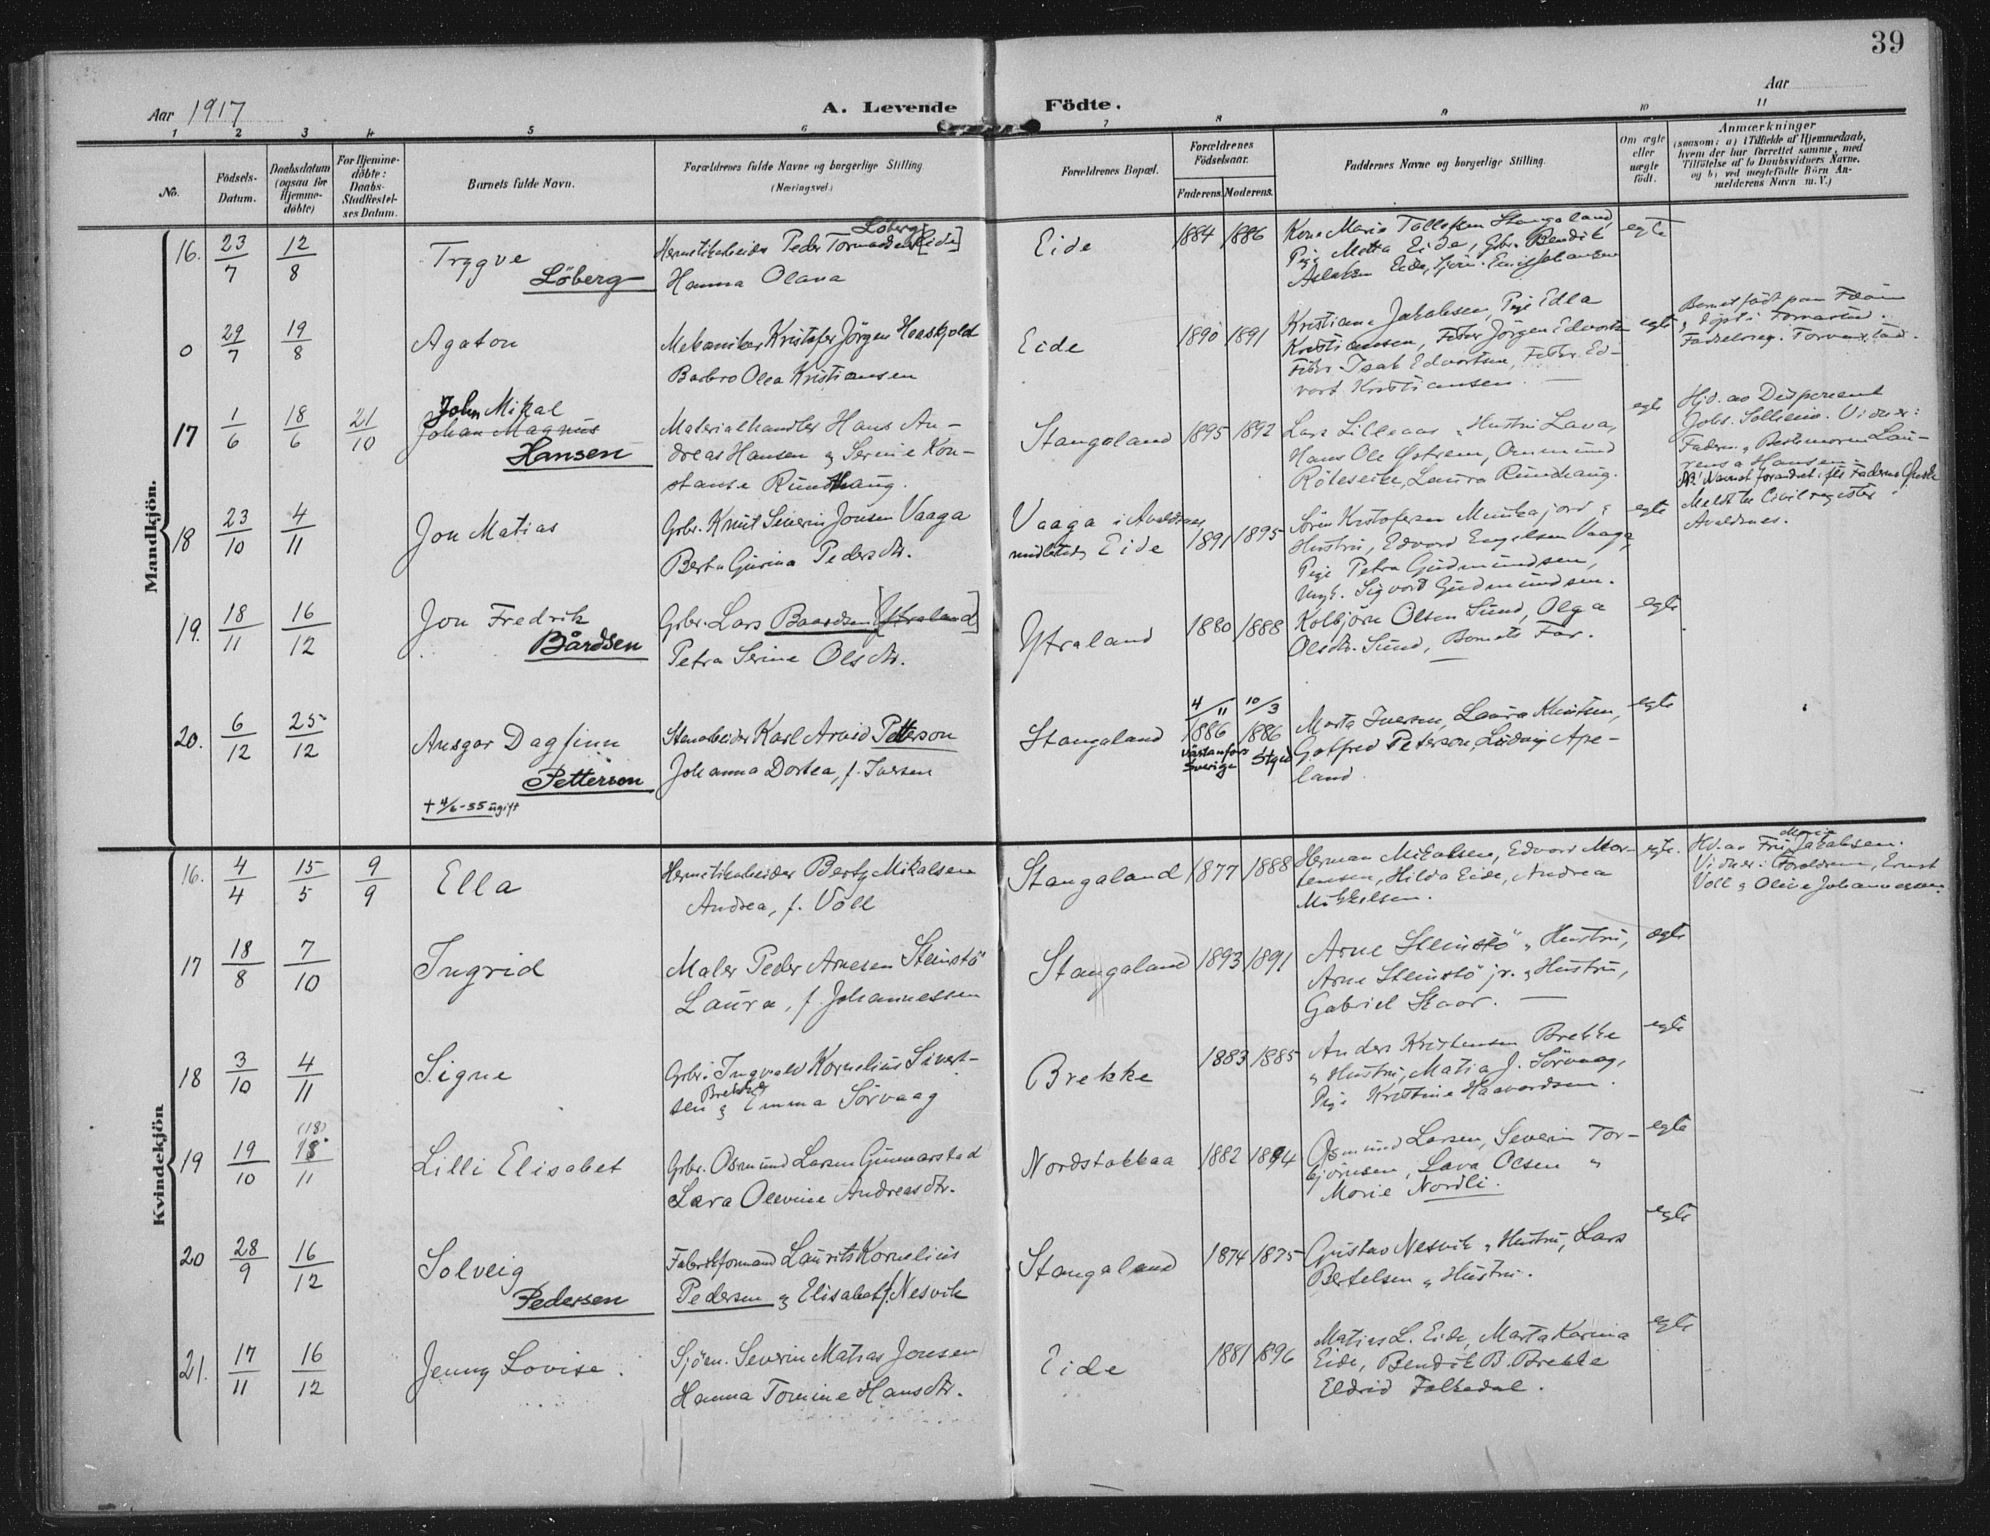 39
Aar 1917
A. Levende Födte.
Aar
1 2 3 4 5 6 7 8 9 10 11
No.
Födsels-Datum.
Daabsdatum (ogsaa for Hjemmedöbte)
For Hjemmedöbte: Daabs-Stadfæstelses Datum.
Barnets fulde Navn.
Forældrenes fulde Navne og borgerlige Stilling (Næringsvei.)
Forældrenes Bopæl.
Forældrenes Födselsaar.
Faderens. Moderens.
Faddernes Navne og borgerlige Stilling.
Om ægte eller uægte födt.
Anmærkninger
(saasom: a) i Tilfælde af Hjemmedaab, hvem der har forrettet samme, med Tilföielse af to Daabsvidners Navne. og b) ved uægtefödte Börn Anmelderens Navn m.V.)
Mandkjön.
16. 23/7 12/8
Trygve
Löberg
Löberg
Hermetikarbeider Peder [Eide]
Hanna Olava
Eide
1884 1886
Kone Maria Tollefsen Stangaland,
Pige Metta Eide, Gbr. Bendik
Aslaksen Eide, Sjöm. Johansen
egte
0 29/7 19/8
Agaton
Mekaniker Kristofer Jörgen Haaskjold
Barbro Olea Kristiansen
Eide
1890 1891
Kristiane Jakobsen, Pige Edla
Kristiansen, Fisker Jörgen Edvartsen
Fisker Isak Edvartsen, Fisker Ed-
vart Kristiansen. —
egte
Barnet födt paa
Fødselsreg. Torvastad.
17 1/6 18/6 21/10
John Mikal
Johan Magnus
Hansen
Materialhandler Hans An-
dreas Hansen & Serine Kon-
stanse Rundhaug.
Stangaland
1895 1892
Lars Lilleaas & Hustru Lava,
Hans Ole Östrem, Ommund
Röteseike, Laura Rundhaug.
egte
Hjd. av Disponent
Johs. Sollien. Vidner:
Fadern & Bestemoren Lau-
rensa Hansen
NB! Navnet forandret ifte Faderens Önske
18 23/10 4/11
Jon Matias
Gbr. Knut Severin Jonsen Vaaga
Berta Gurina Pedersdtr.
Vaaga i Avaldsnes
midlertid. Eide
1891 1895
Sören Kristofersen Munkajord &
Hustru, Edvard Engelsen Vaaga,
Pige Petra Gudmundsen,
Ungk. Sigvard Gudmundsen.
egte
Meldt til Civilregister i
Avaldsnes.
19. 18/11 16/12
Jon Fredrik
Bårdsen
Gbr. Lars Baardsen [Ytraland]
Petra Serine Olsdtr.
Ytraland
1880 1888
Kolbjörn Olsen Sund, Olga
Olsdtr. Sund, Barnets Far.
egte
20. 6/12 25/12
Ansgar Dagfinn
Petterson
+ 4/6-35 ugift
Stenarbeider Karl Arvid Petterson
Johanna Dortea, f. Iversen
Stangaland
4/11 1886 Västanfors Sverige
10/3 1886 Stgld
Marta Iversen, Laura Knutsen,
Gotfred Peterson, Ludvig Ape-
land.
egte
Kvindekjön
16. 4/4 15/5 9/9
Ella
Hermetikarbeider Bertz Mikalsen
Andrea, f. Voll
Stangaland
1877 1888
Herman Mikalsen, Edvard Mor-
tensen, Hilda Eide, Andrea
Mikkelsen.
egte.
Hd. av Fru Maria Jakobsen.
Vidner: Forældrene, Ernst
Voll & Olive Johannessen.
17 18/8 7/10
Ingrid
Maler Peder Arnesen Steinstö
Laura, f. Johannessen
Stangaland
1893 1891
Arne Steinstö & Hustru,
Arne Steinstö jr. & Hustru,
Gabriel Skaar. —
egte
18 3/10 4/11
Signe
Gbr. Ingvald Kornelius Sivert-
sen Brekke & Emma Sörvaag
Brekke
1883 1885
Anders Kristensen Brekke
& Hustru, Matia J. Sörvaag,
Pige Kristine Haavardsen.
egte
19 19/10 (18) 18/11
Lilli Elisabet
Gbr. Osmund Larsen Gunnarstad
Lava Olevine Andreasdtr.
Nordstokkaa
1882 1894
Osmund Larsen, Severin Tor-
björnsen, Lava Olsen &
Marie Nordli.
egte
20 28/9 16/12
Solveig
Pedersen
Fabrikformand Laurits Kornelius
Pedersen & Elisabet f. Nesvik
Stangaland
1874 1875
Gustav Nesvik & Hustru, Lars
Bertelsen & Hustru.
egte
21. 17/11 16/12
Jenny Lovise.
Sjöm. Severin Matias Jonsen
Hanna Tomine Hansdtr.
Eide
1881 1896
Matias L. Eide, Marta Karina
Eide, Bendik B. Brekke
Eldrid Falkedal.
egte